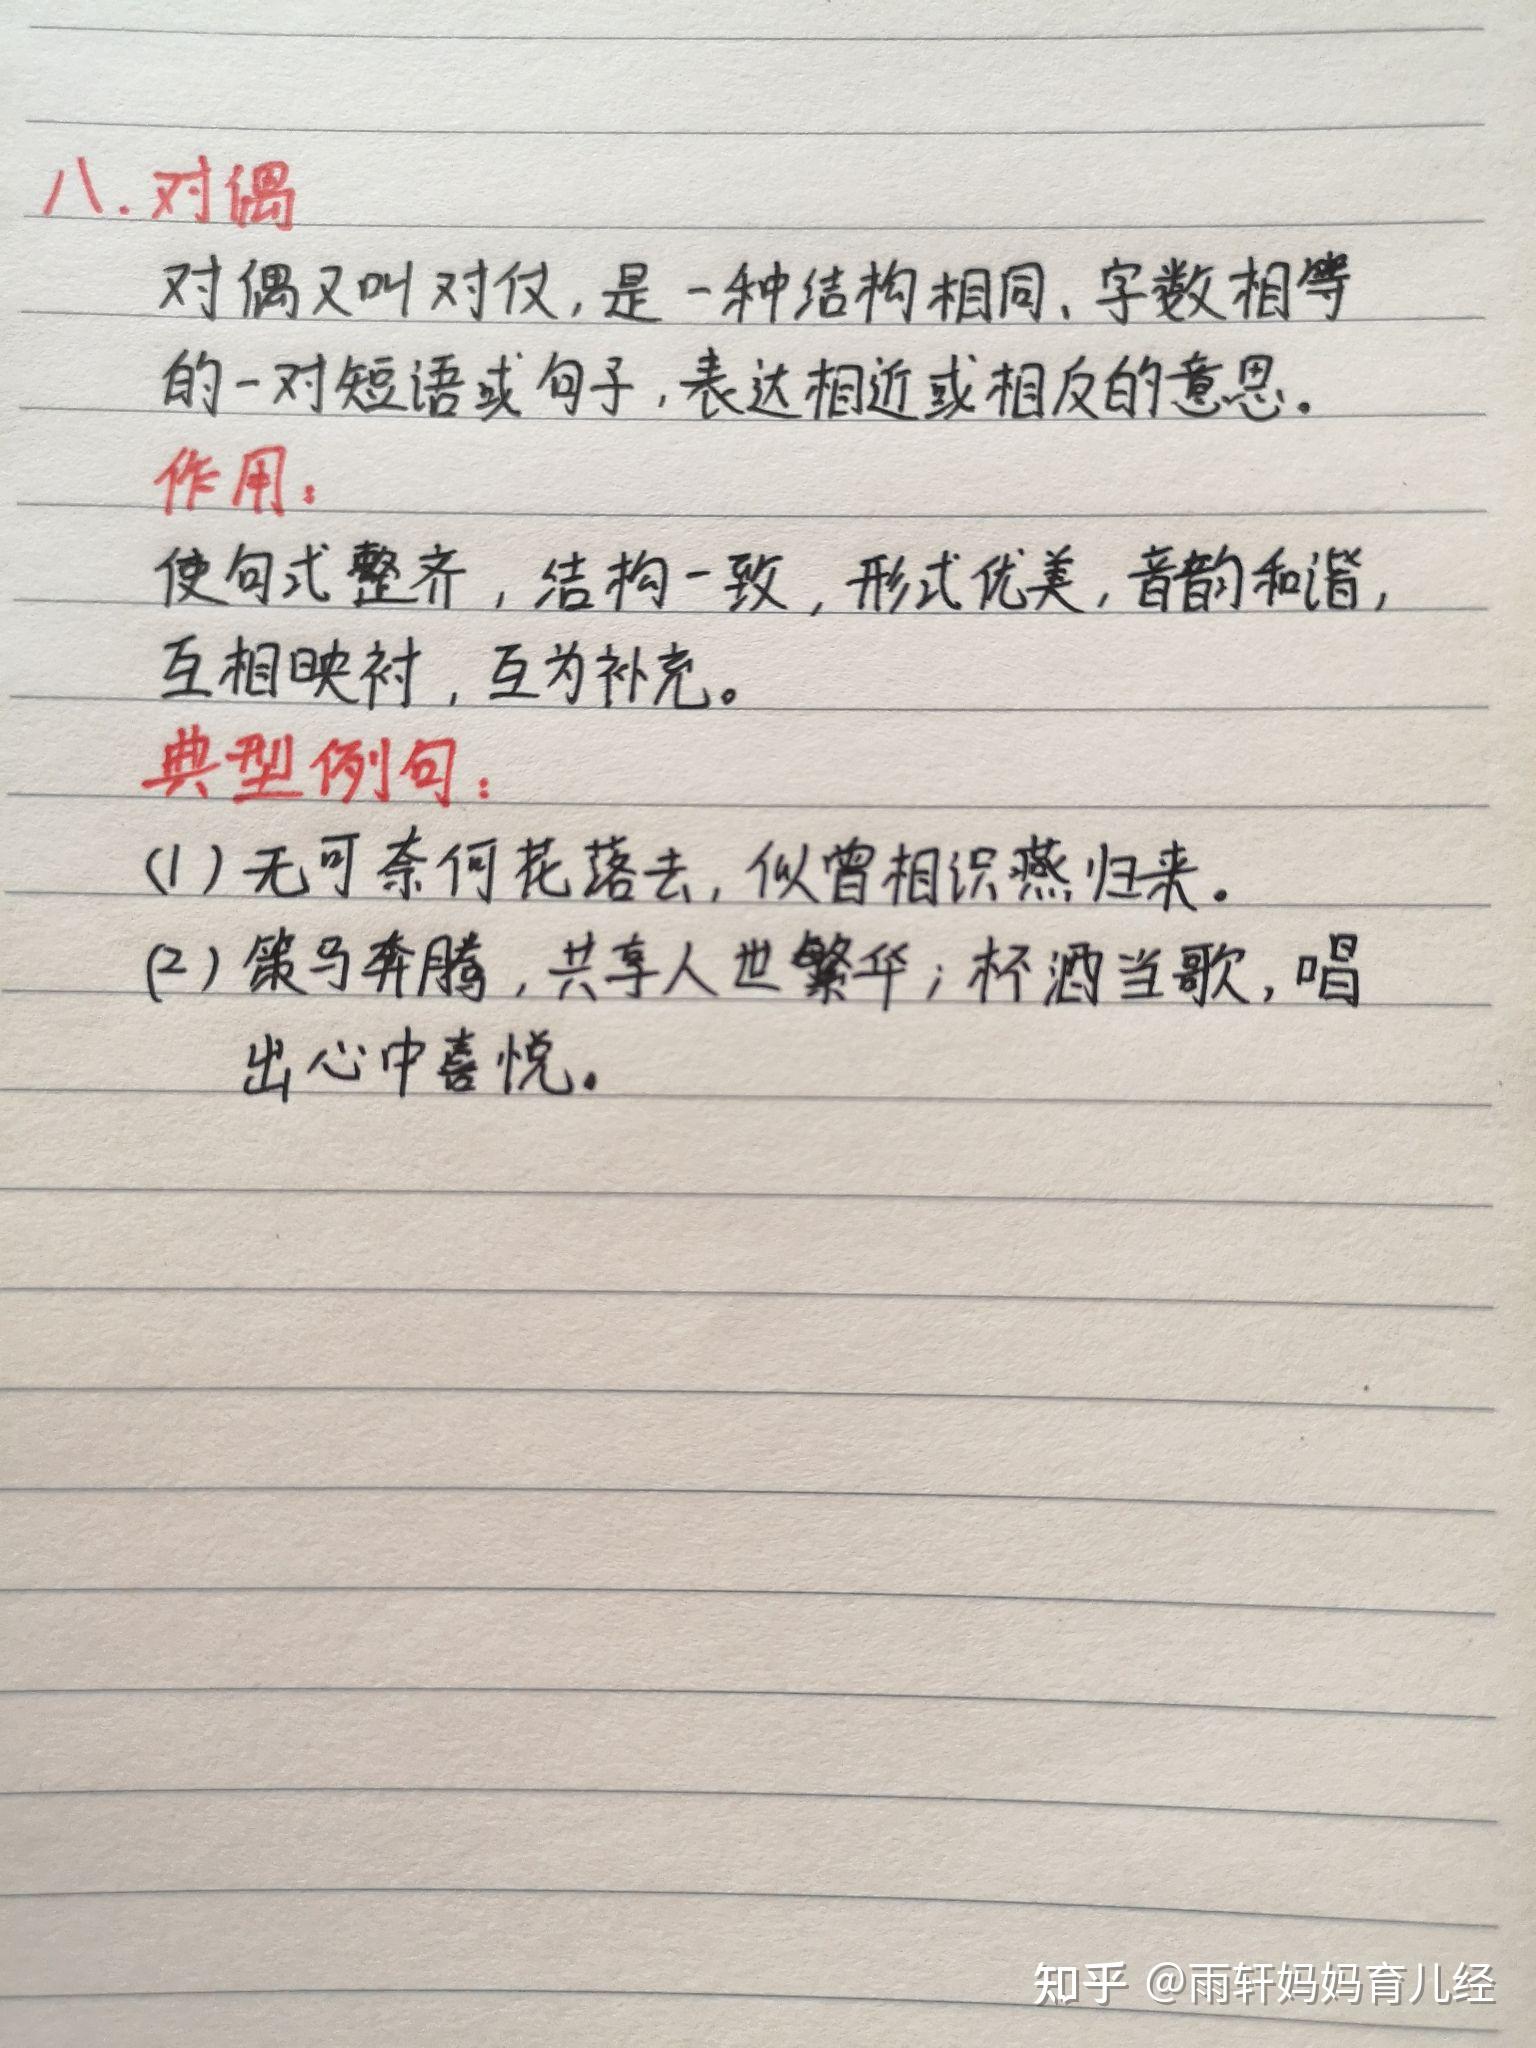 八.对偶
对偶又叫对仗,是一种结构相同、字数相等
的一对短语或句子,表达相近或相反的意思。
作用:
使句式整齐,结构一致,形式优美,音韵和谐,
互相映衬,互为补充。
典型例句:
(1)无可奈何花落去,似曾相识燕归来。
(2)策马奔腾,共享人世繁华;杯酒当歌,唱
出心中喜悦。
知乎 @雨轩妈妈育儿经